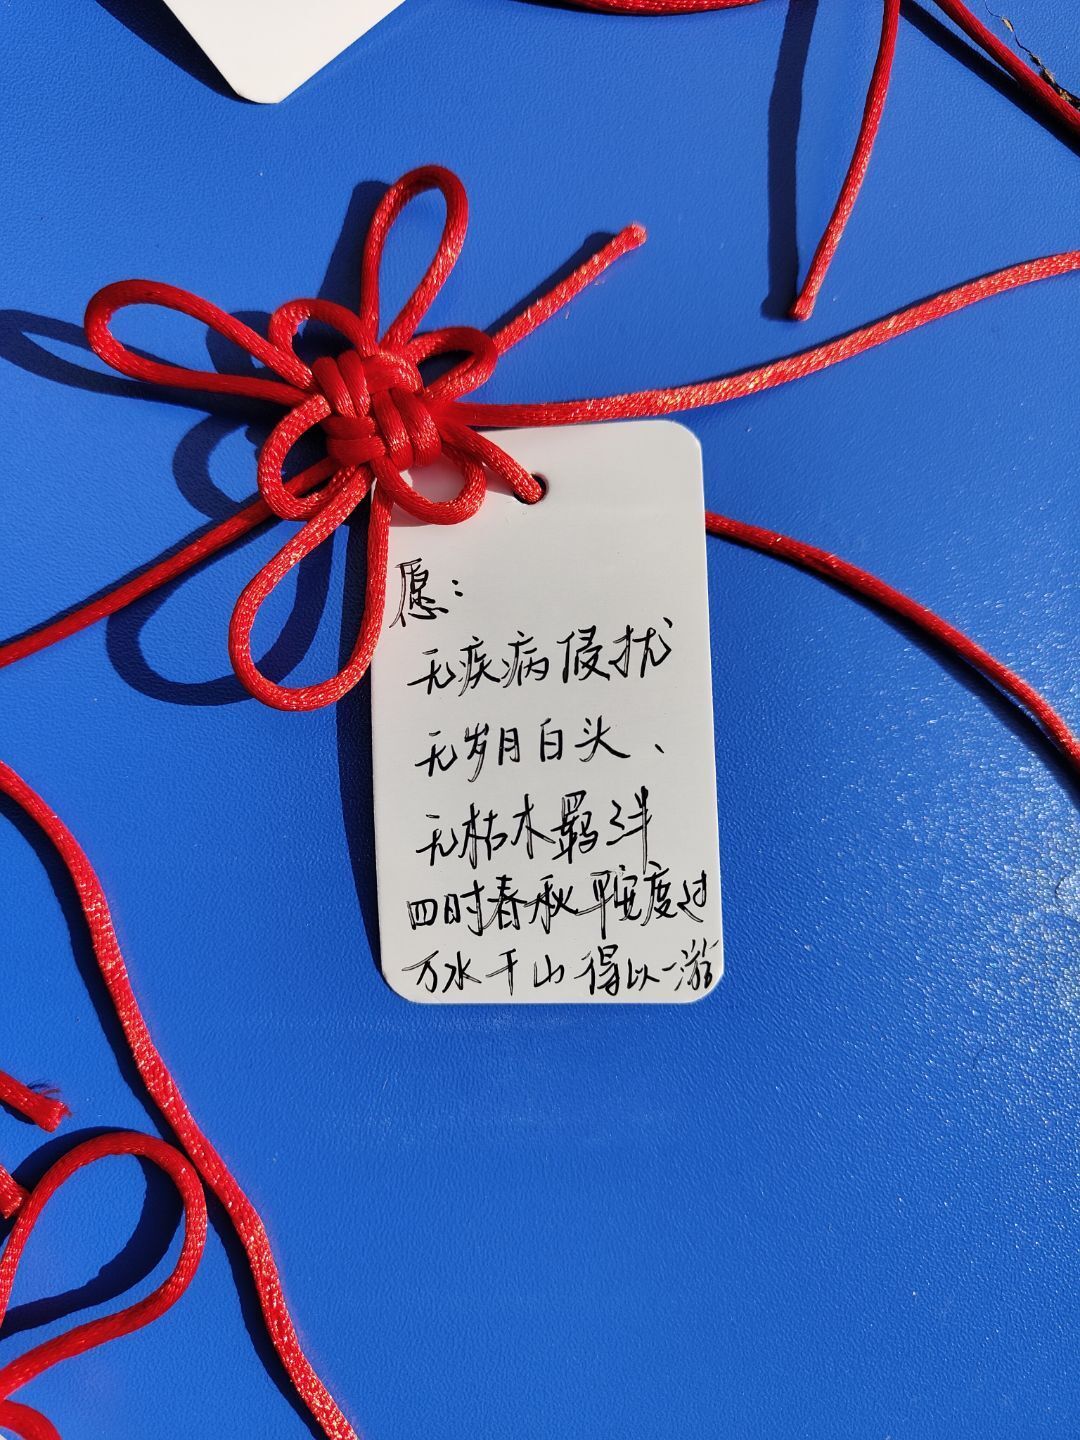 愿:
无疾病侵扰
无岁月白头、
无枯木羁绊
四时春秋平安度过
万水千山得以一游